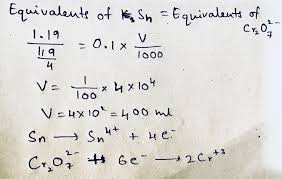 Equivalents of Sn = Equivalents of Cr₂O₇²⁻
1.19 / (119/4) = 0.1 × V/1000
V = 1/100 × 4 × 10⁴
V = 4×10² = 400 ml
Sn → Sn⁴⁺ + 4e⁻
Cr₂O₇²⁻ + 6e⁻ → 2Cr⁺³